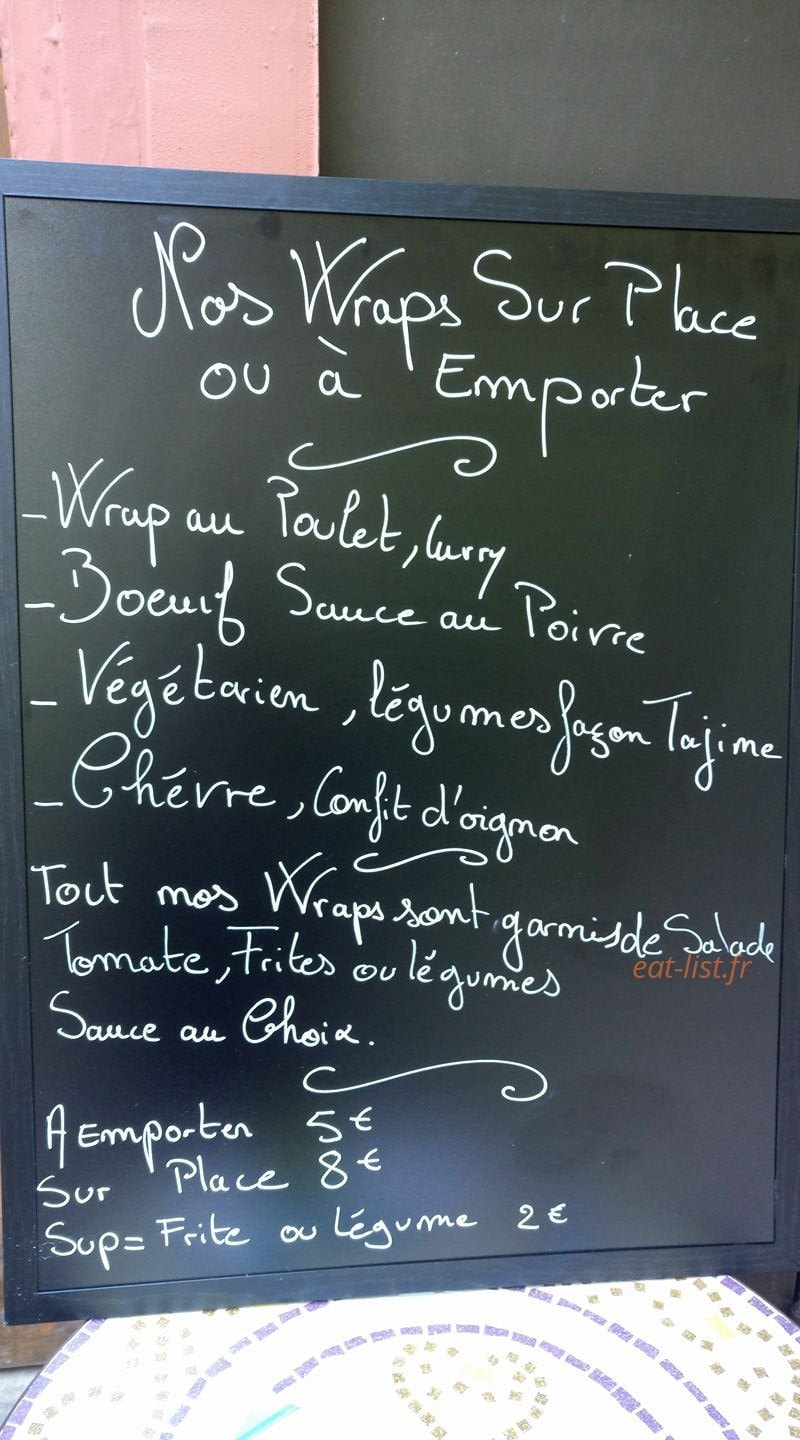 Nos Wraps Sur Place
ou à Emporter
- Wrap au Poulet, Curry
- Boeuf Sauce au Poivre
- Végétarien, légumes façon Tajine
- Chévre, Confit d'oignon
Tout nos Wraps sont garnis de Salade
Tomate, Frites ou légumes
eat-list.fr
Sauce au Choix.
A Emporter 5€
Sur Place 8€
Sup= Frite ou légume 2€